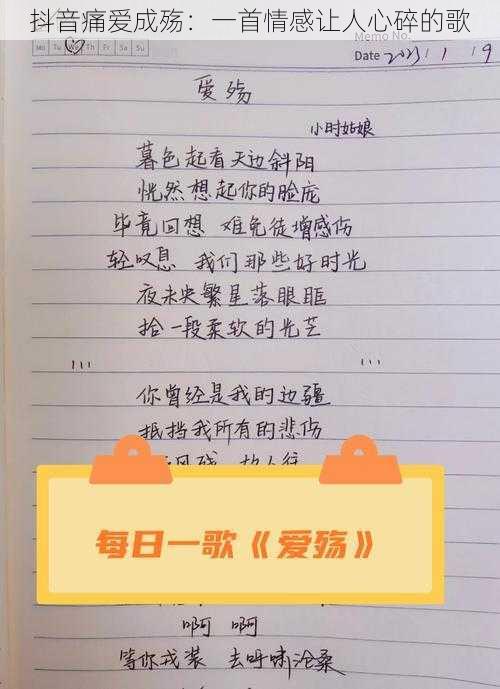 抖音痛爱成殇：一首情感让人心碎的歌
Memo No.
Mo Tu We Th Fr Sa Su
Date 2023 / 1 / 19
爱殇
小时姑娘
暮色起看天边斜阳
恍然想起你的脸庞
毕竟回想 难免徒增感伤
轻叹息 我们那些好时光
夜未央繁星落眼眶
拾一段柔软的光芒
你曾经是我的边疆
抵挡我所有的悲伤
风残 故人往
每日一歌《爱殇》
啊 啊
等你戎装 去呼啸沧桑